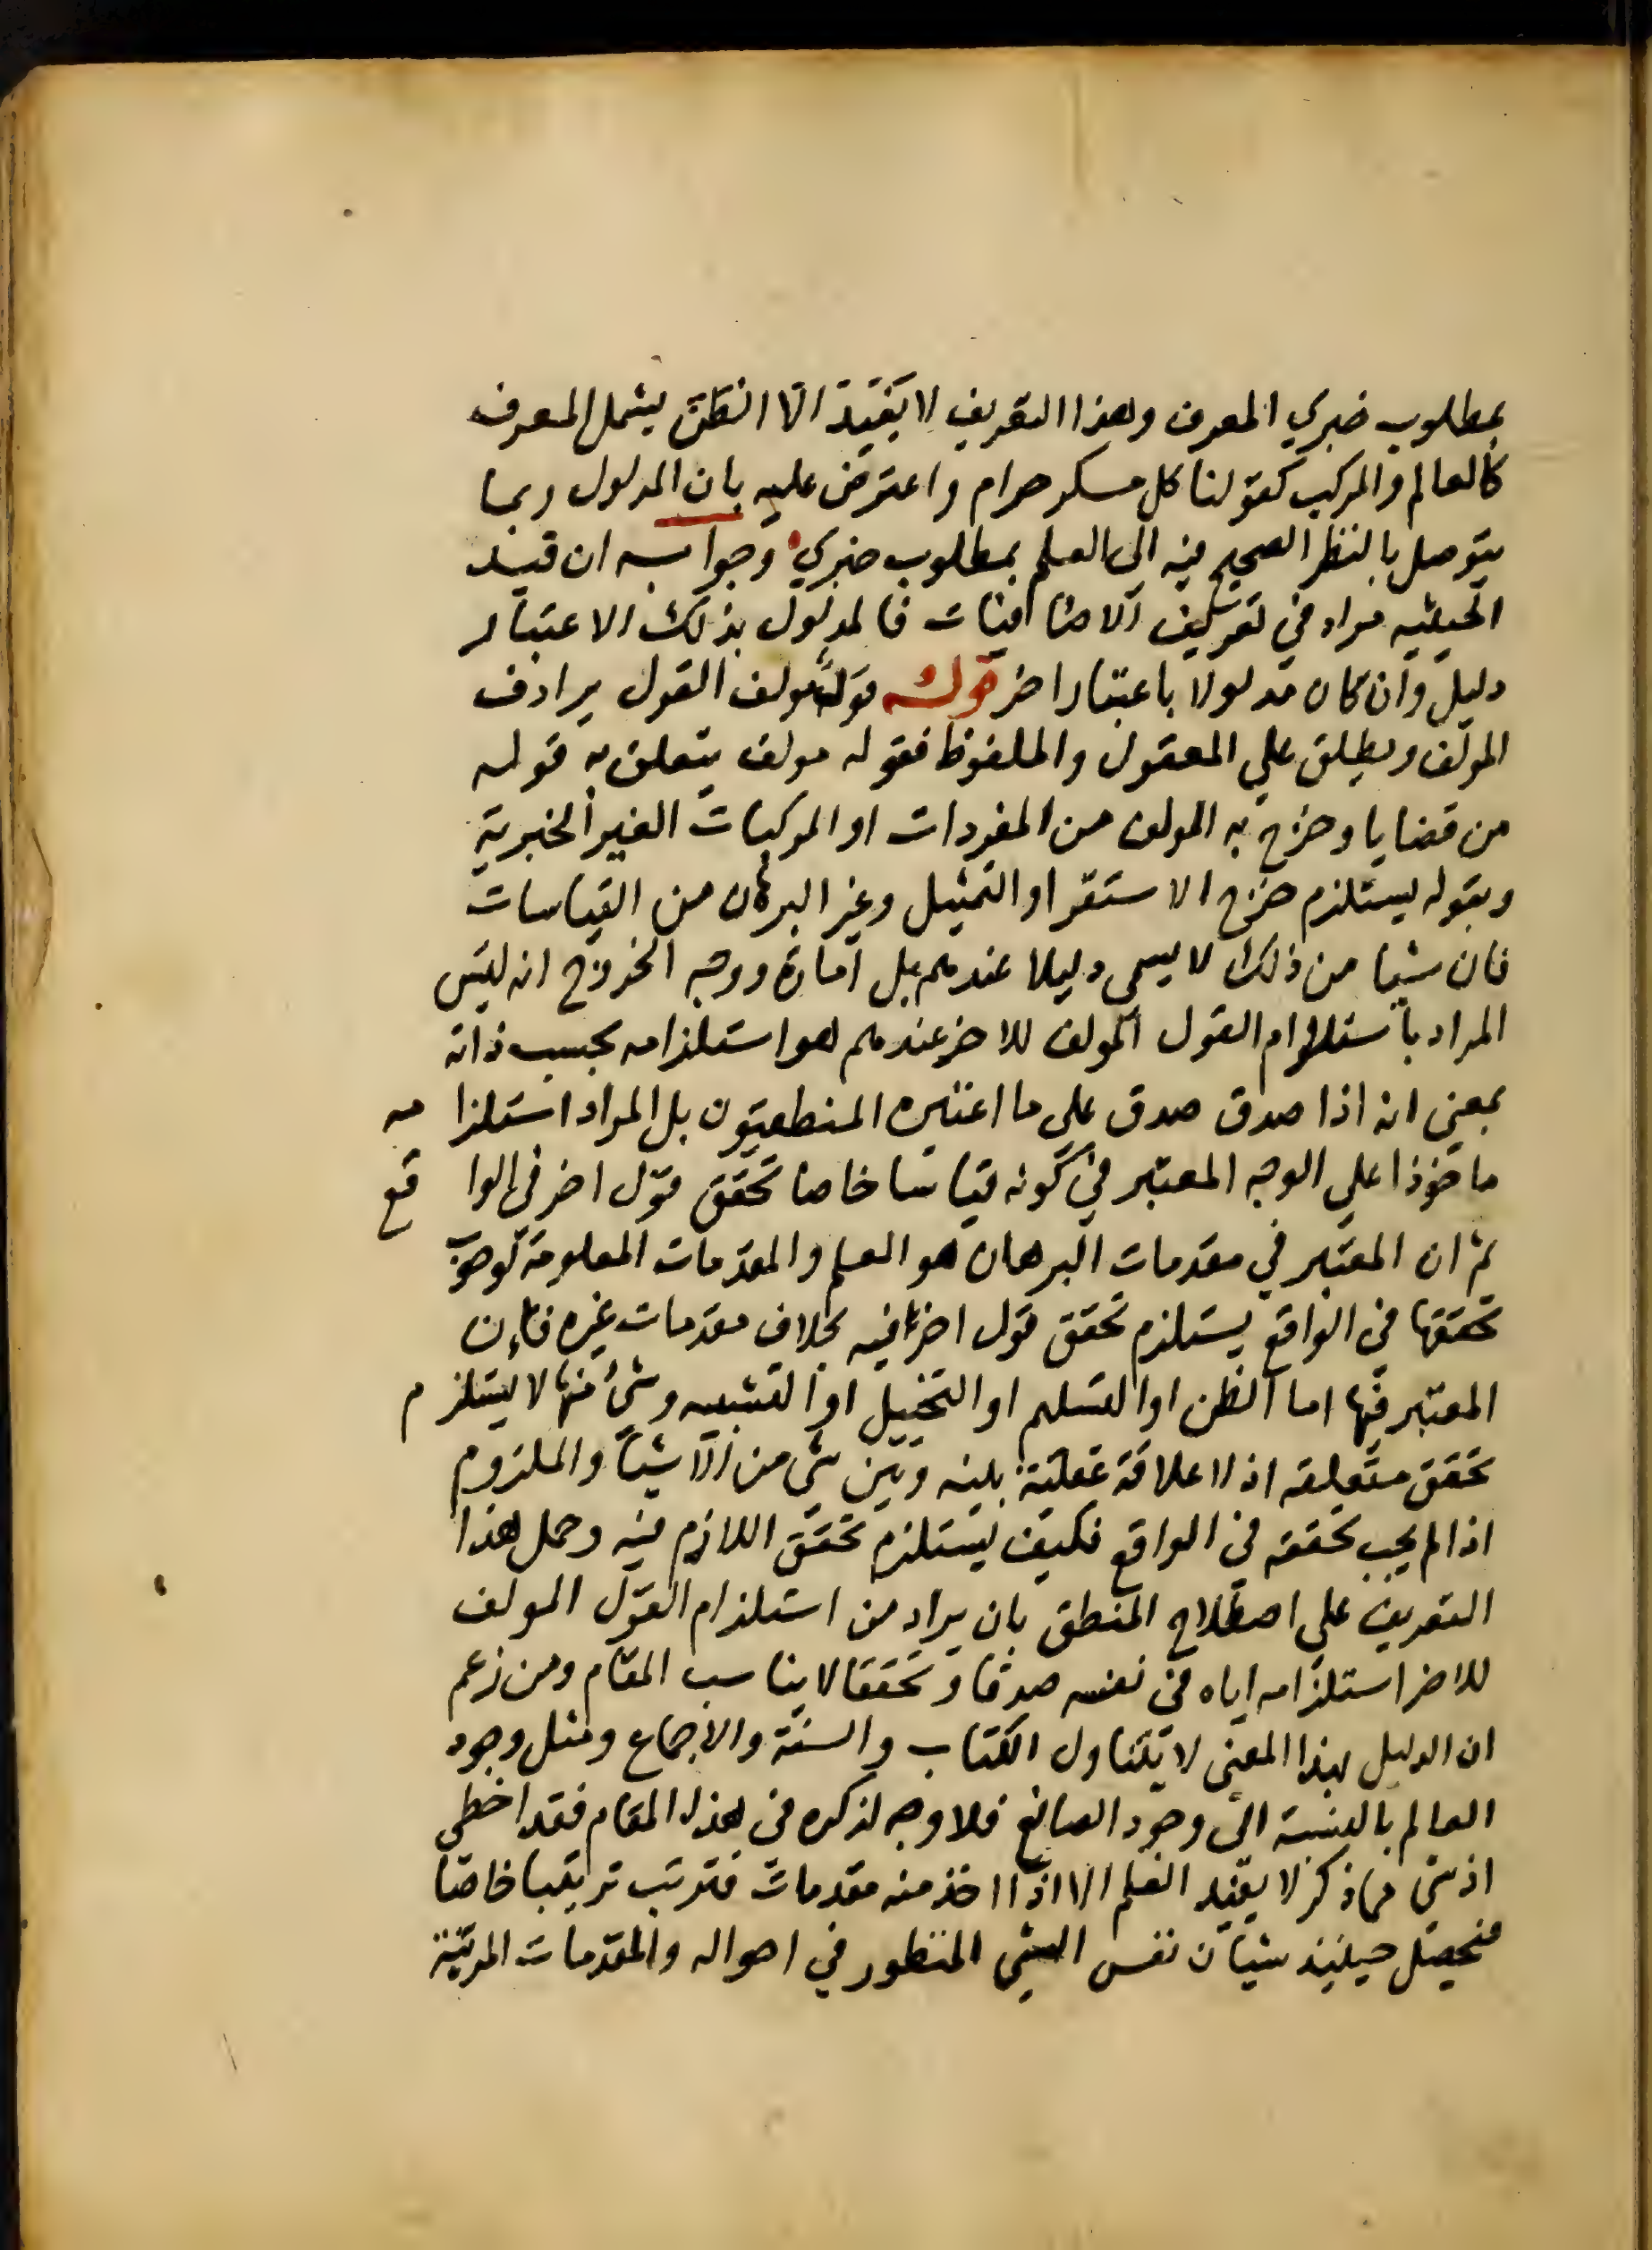 بمطلوب خبري المعرف وهذا التعريف لا يفيد الا الظن يشمل المعرف
كالعالم والمركب كقولنا كل مسكر حرام واعترض عليه بان المدلول ربما
يتوصل بالنظر الصحيح فيه الى العلم بمطلوب خبري وجوابه ان قيد
الحيثيه مراد في تعريف الاضافيات فالمدلول بذلك الاعتبار
دليل وان كان مدلولا باعتبار اخر قوله قول مولف القول يرادف
المولف ويطلق علي المعقول والملفوظ فقوله مولف يتعلق به قوله
من قضايا وخرج به المولف من المفردات او المركبات الغير الخبرية
وبقوله يستلزم خرج الاستقرا والتمثيل وغير البرهان من القياسات
فان شيا من ذلك لا يسمى دليلا عندهم بل امارة ووجه الخروج انه ليس
المراد باستلزام القول المولف للاخر عندهم هو استلزامه بحسب ذاته
بمعنى انه اذا صدق صدق على ما اعتبره المنطقيون بل المراد استلزامه
ماخوذا علي الوجه المعتبر في كونه قياسا خاصا تحقق قول اخر في الواقع
ثم ان المعتبر في مقدمات البرهان هو العلم والمقدمات المعلومة لوجوب
تحققها في الواقع يستلزم تحقق قول اخر فيه بخلاف مقدمات غيره فان
المعتبر فيها اما الظن او التسليم او التخييل او التشبيه وشئ منها لا يستلزم
تحقق متعلقه اذ لا علاقة عقلية بينه وبين شى من الاشيا والملزوم
اذا لم يجب تحققه في الواقع فكيف يستلزم تحقق اللازم فيه وحمل هذا
التعريف علي اصطلاح المنطق بان يراد من استلزام القول المولف
للاخر استلزامه اياه في نفسه صدقا وتحققا لا يناسب المقام ومن زعم
ان الدليل بهذا المعنى لا يتناول الكتاب والسنة والاجماع ومثل وجود
العالم بالنسبة الى وجود الصانع فلا وجه لذكره في هذا المقام فقد اخطى
اذ شى مما ذكر لا يفيد العلم الا اذا اخذ منه مقدمات فترتب ترتيبا خاصا
فيحصل حينئذ شيأن نفس الشي المنظور في احواله والمقدمات المرتبة